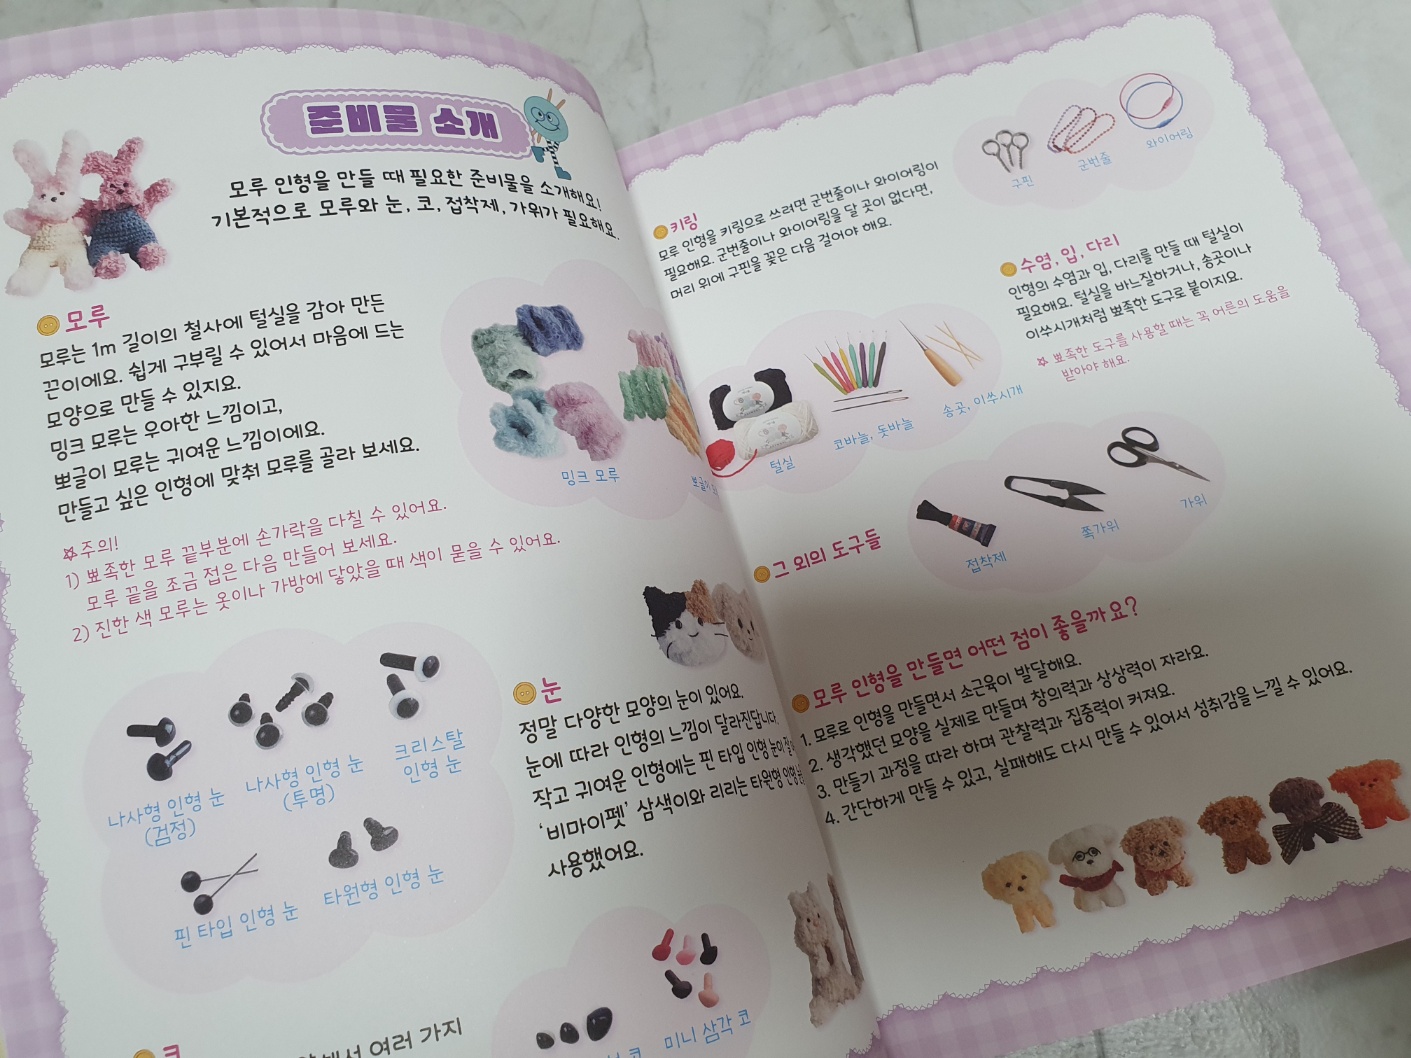 준비물 소개
모루 인형을 만들 때 필요한 준비물을 소개해요!
기본적으로 모루와 눈, 코, 접착제, 가위가 필요해요.
모루
모루는 1m 길이의 철사에 털실을 감아 만든
끈이에요. 쉽게 구부릴 수 있어서 마음에 드는
모양으로 만들 수 있지요.
밍크 모루는 우아한 느낌이고,
뽀글이 모루는 귀여운 느낌이에요.
만들고 싶은 인형에 맞춰 모루를 골라 보세요.
밍크 모루
뽀글이
주의!
1) 뾰족한 모루 끝부분에 손가락을 다칠 수 있어요.
모루 끝을 조금 접은 다음 만들어 보세요.
2) 진한 색 모루는 옷이나 가방에 닿았을 때 색이 묻을 수 있어요.
나사형 인형 눈
(검정)
나사형 인형 눈
(투명)
크리스탈
인형 눈
핀 타입 인형 눈
타원형 인형 눈
눈
정말 다양한 모양의 눈이 있어요.
눈에 따라 인형의 느낌이 달라진답니다.
작고 귀여운 인형에는 핀 타입 인형 눈이
'비마이펫' 삼색이와 리리는 타원형 인형
사용했어요.
코
여러 가지
코
미니 삼각 코
키링
모루 인형을 키링으로 쓰려면 군번줄이나 와이어링이
필요해요. 군번줄이나 와이어링을 달 곳이 없다면,
머리 위에 구핀을 꽂은 다음 걸어야 해요.
구핀
군번줄
와이어링
수염, 입, 다리
인형의 수염과 입, 다리를 만들 때 털실이
필요해요. 털실을 바느질하거나, 송곳이나
이쑤시개처럼 뾰족한 도구로 붙이지요.
뾰족한 도구를 사용할 때는 꼭 어른의 도움을
받아야 해요.
털실
코바늘, 돗바늘
송곳, 이쑤시개
그 외의 도구들
접착제
쪽가위
가위
모루 인형을 만들면 어떤 점이 좋을까요?
1. 모루로 인형을 만들면서 소근육이 발달해요.
2. 생각했던 모양을 실제로 만들며 창의력과 상상력이 자라요.
3. 만들기 과정을 따라 하며 관찰력과 집중력이 커져요.
4. 간단하게 만들 수 있고, 실패해도 다시 만들 수 있어서 성취감을 느낄 수 있어요.